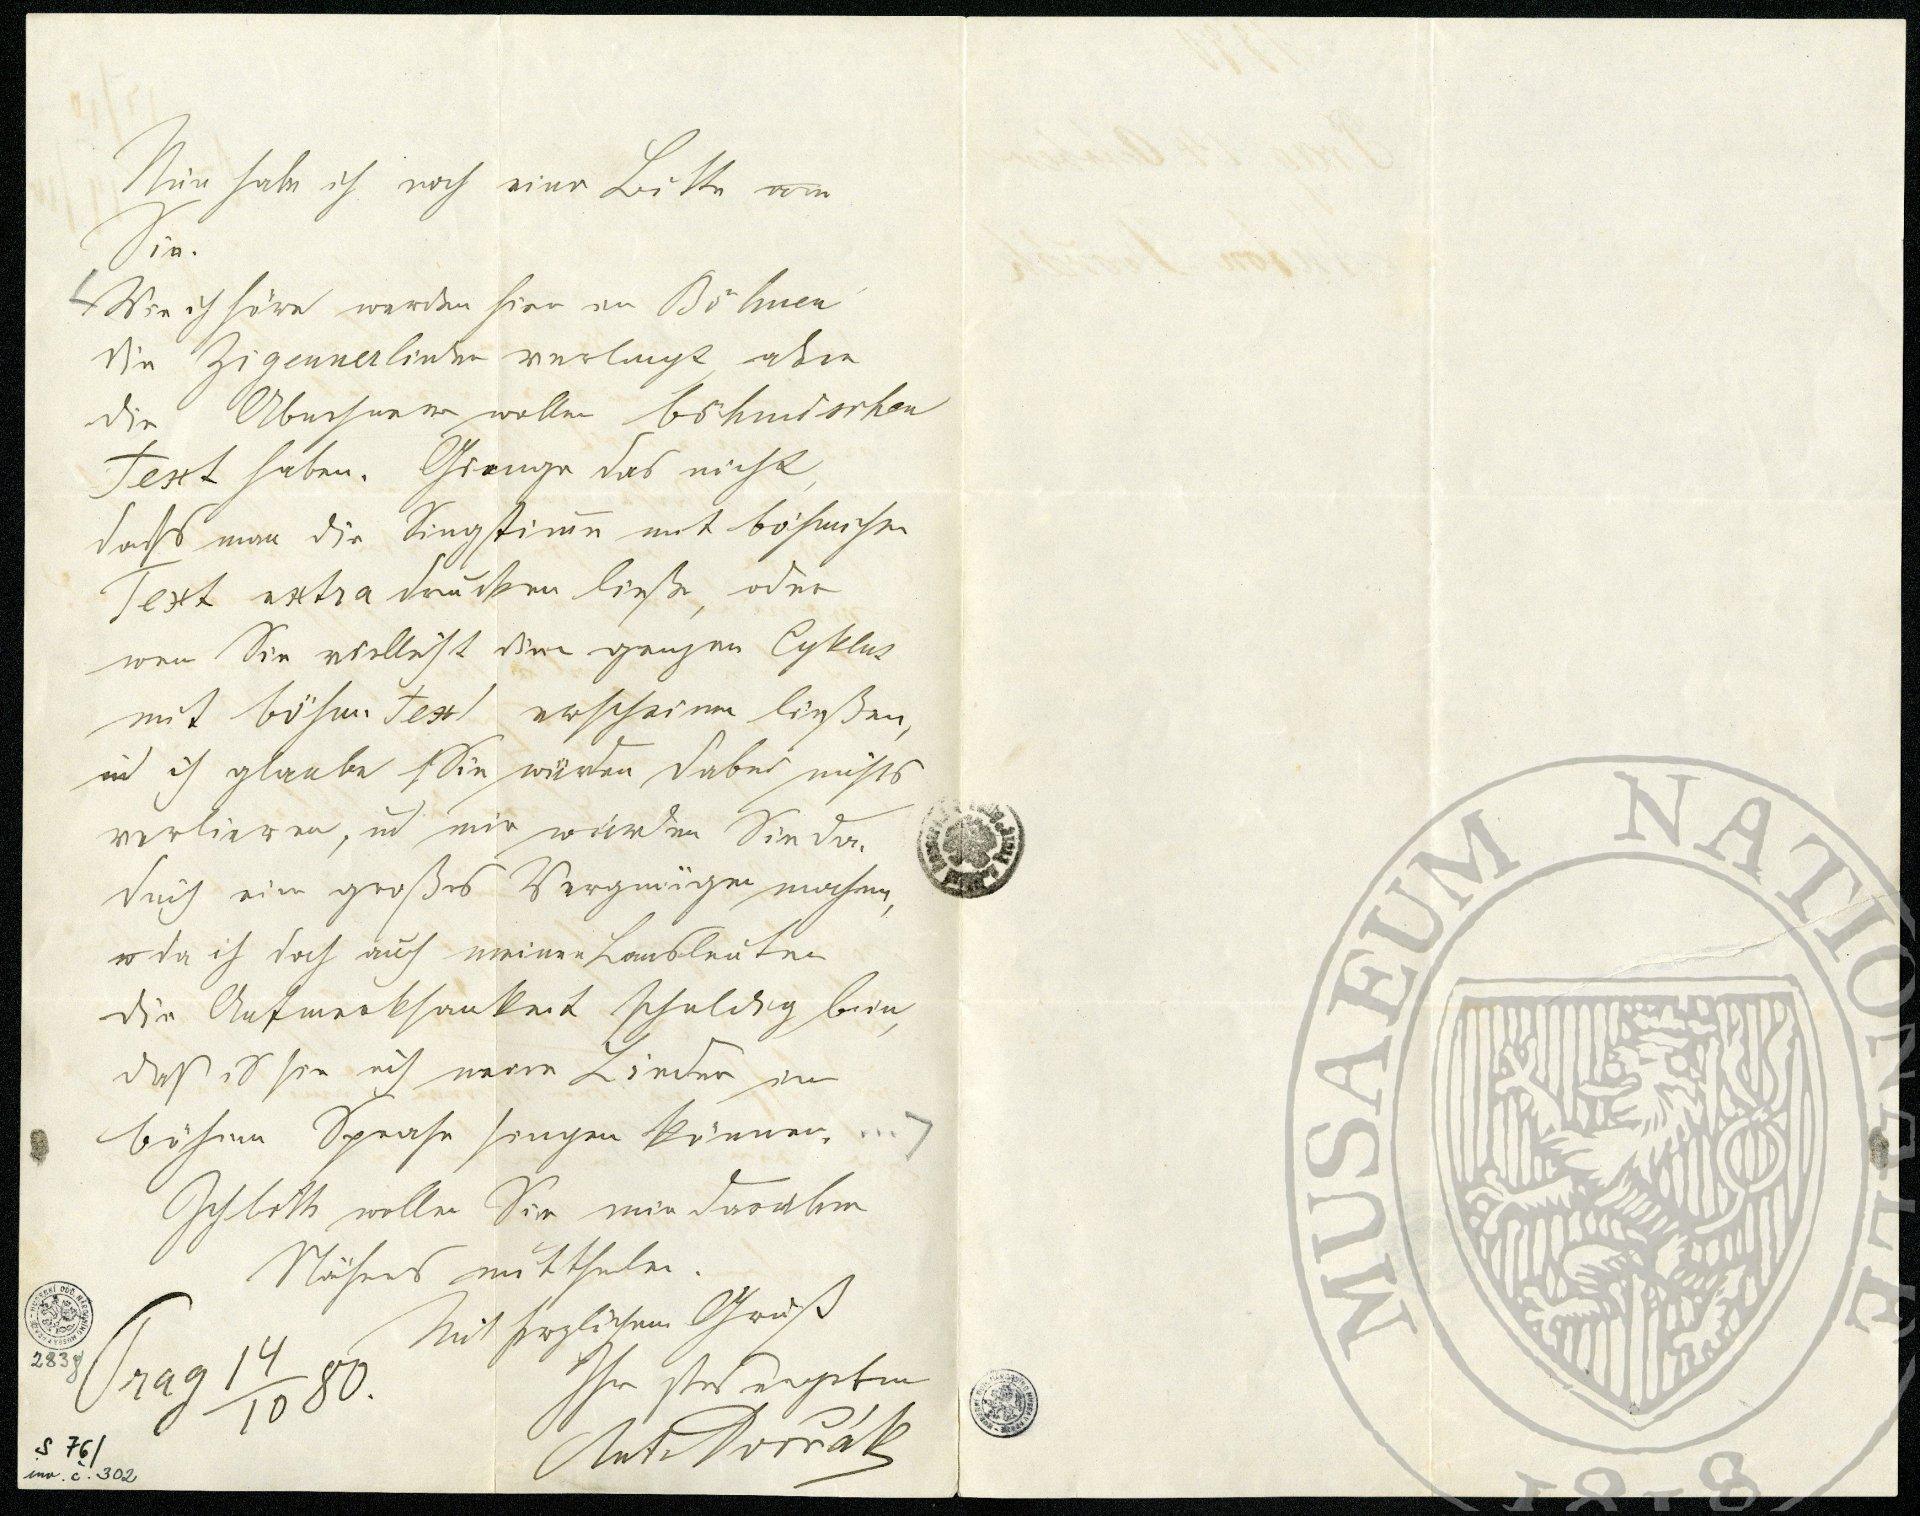 Nun habe ich noch eine Bitte an
Sie.
Wie ich höre werden hier in Böhmen
die Zigeunerlieder verlangt, aber
die Abnehmer wollen böhmischen
Text haben. Gienge das nicht,
dass man die Singstimme mit böhmischen
Text extra drucken ließe, oder
wen Sie vielleicht den ganzen Cyklus
mit böhm Text erscheinen ließen,
und ich glaube Sie würden dabei nichts
verlieren, und mir würden Sie da-
durch ein großes Vergnügen machen,
da ich doch auch meinen Landsleuten
die Aufmerksamkeit schuldig bin,
daß sie auch meine Lieder in
böhm Sprache singen können.
Ich bitte wollen Sie mir darüber
Näheres mittheilen.
Mit herzlichem Gruß
Ihr stets ergebener
Ant. Dvořák
Prag 14/10 80.
S 76/
inv. č. 302
MUSAEUM NATIONALE
1818